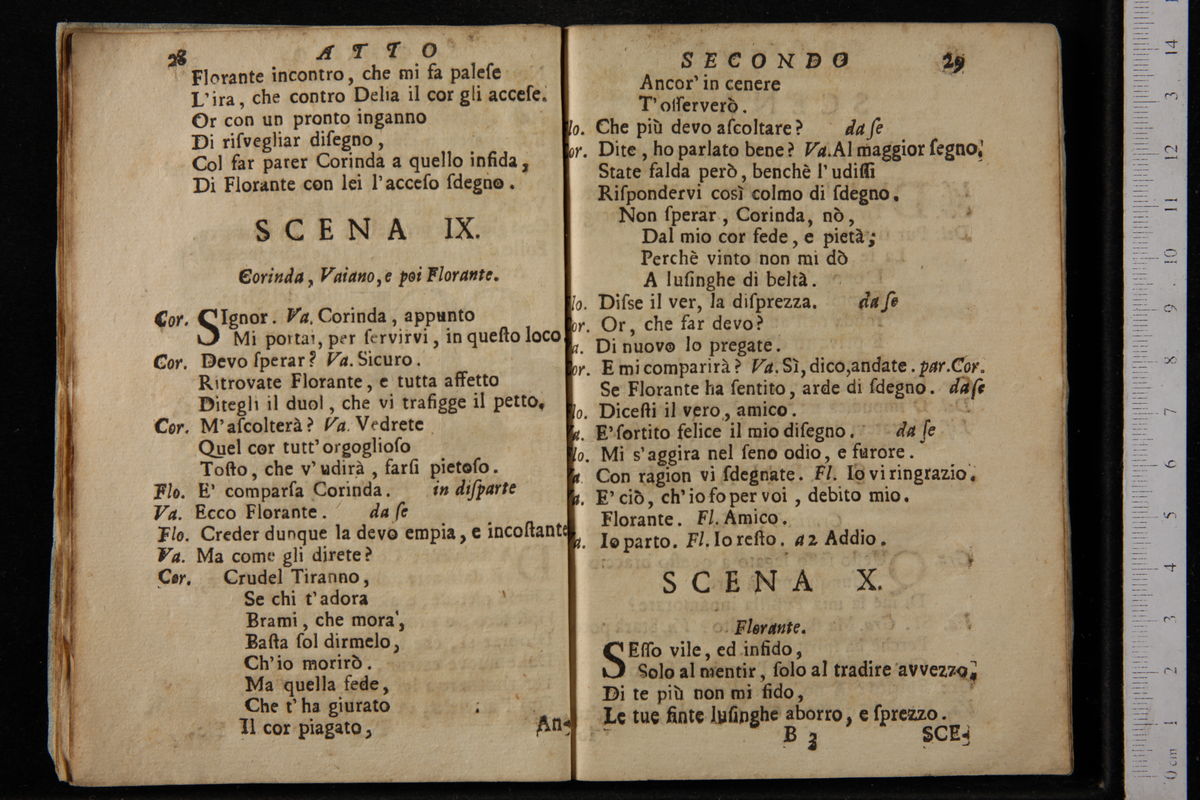 28 ATTO
Florante incontro, che mi fa paleſe
L'ira, che contro Delia il cor gli acceſe.
Or con un pronto inganno
Di riſvegliar diſegno,
Col far parer Corinda a quello infida,
Di Florante con lei l'acceſo ſdegno.
SCENA IX.
Corinda, Vaiano, e poi Florante.
Cor. SIgnor. Va. Corinda, appunto
Mi portai, per ſervirvi, in queſto loco
Cor. Devo ſperar? Va. Sicuro.
Ritrovate Florante, e tutta affetto
Ditegli il duol, che vi trafigge il petto.
Cor. M'aſcolterà? Va. Vedrete
Quel cor tutt'orgoglioſo
Toſto, che v'udirà, farſi pietoſo.
Flo. E' comparſa Corinda. in diſparte
Va. Ecco Florante. da ſe
Flo. Creder dunque la devo empia, e incoſtante
Va. Ma come gli direte?
Cor. Crudel Tiranno,
Se chi t'adora
Brami, che mora,
Baſta ſol dirmelo,
Ch'io morirò.
Ma quella fede,
Che t'ha giurato
Il cor piagato,
An-
SECONDO 29
Ancor' in cenere
T'oſſerverò.
lo. Che più devo aſcoltare? da ſe
or. Dite, ho parlato bene? Va. Al maggior ſegno.
State falda però, benchè l'udiſſi
Riſpondervi così colmo di ſdegno.
Non ſperar, Corinda, nò,
Dal mio cor fede, e pietà;
Perchè vinto non mi dò
A luſinghe di beltà.
lo. Diſse il ver, la diſprezza. da ſe
or. Or, che far devo?
a. Di nuovo lo pregate.
or. E mi comparirà? Va. Sì, dico, andate. par. Cor.
Se Florante ha ſentito, arde di ſdegno. da ſe
lo. Diceſti il vero, amico.
a. E' ſortito felice il mio diſegno. da ſe
lo. Mi s'aggira nel ſeno odio, e furore.
a Con ragion vi ſdegnate. Fl. Io vi ringrazio.
a. E' ciò, ch'io fo per voi, debito mio.
Florante. Fl. Amico.
a. Io parto. Fl. Io reſto. a 2 Addio.
SCENA X.
Florante.
SEſſo vile, ed infido,
Solo al mentir, ſolo al tradire avvezzo,
Di te più non mi fido,
Le tue finte luſinghe aborro, e ſprezzo.
B 3 SCE-
14
13
12
11
10
9
8
7
6
5
4
3
2
1
0 cm